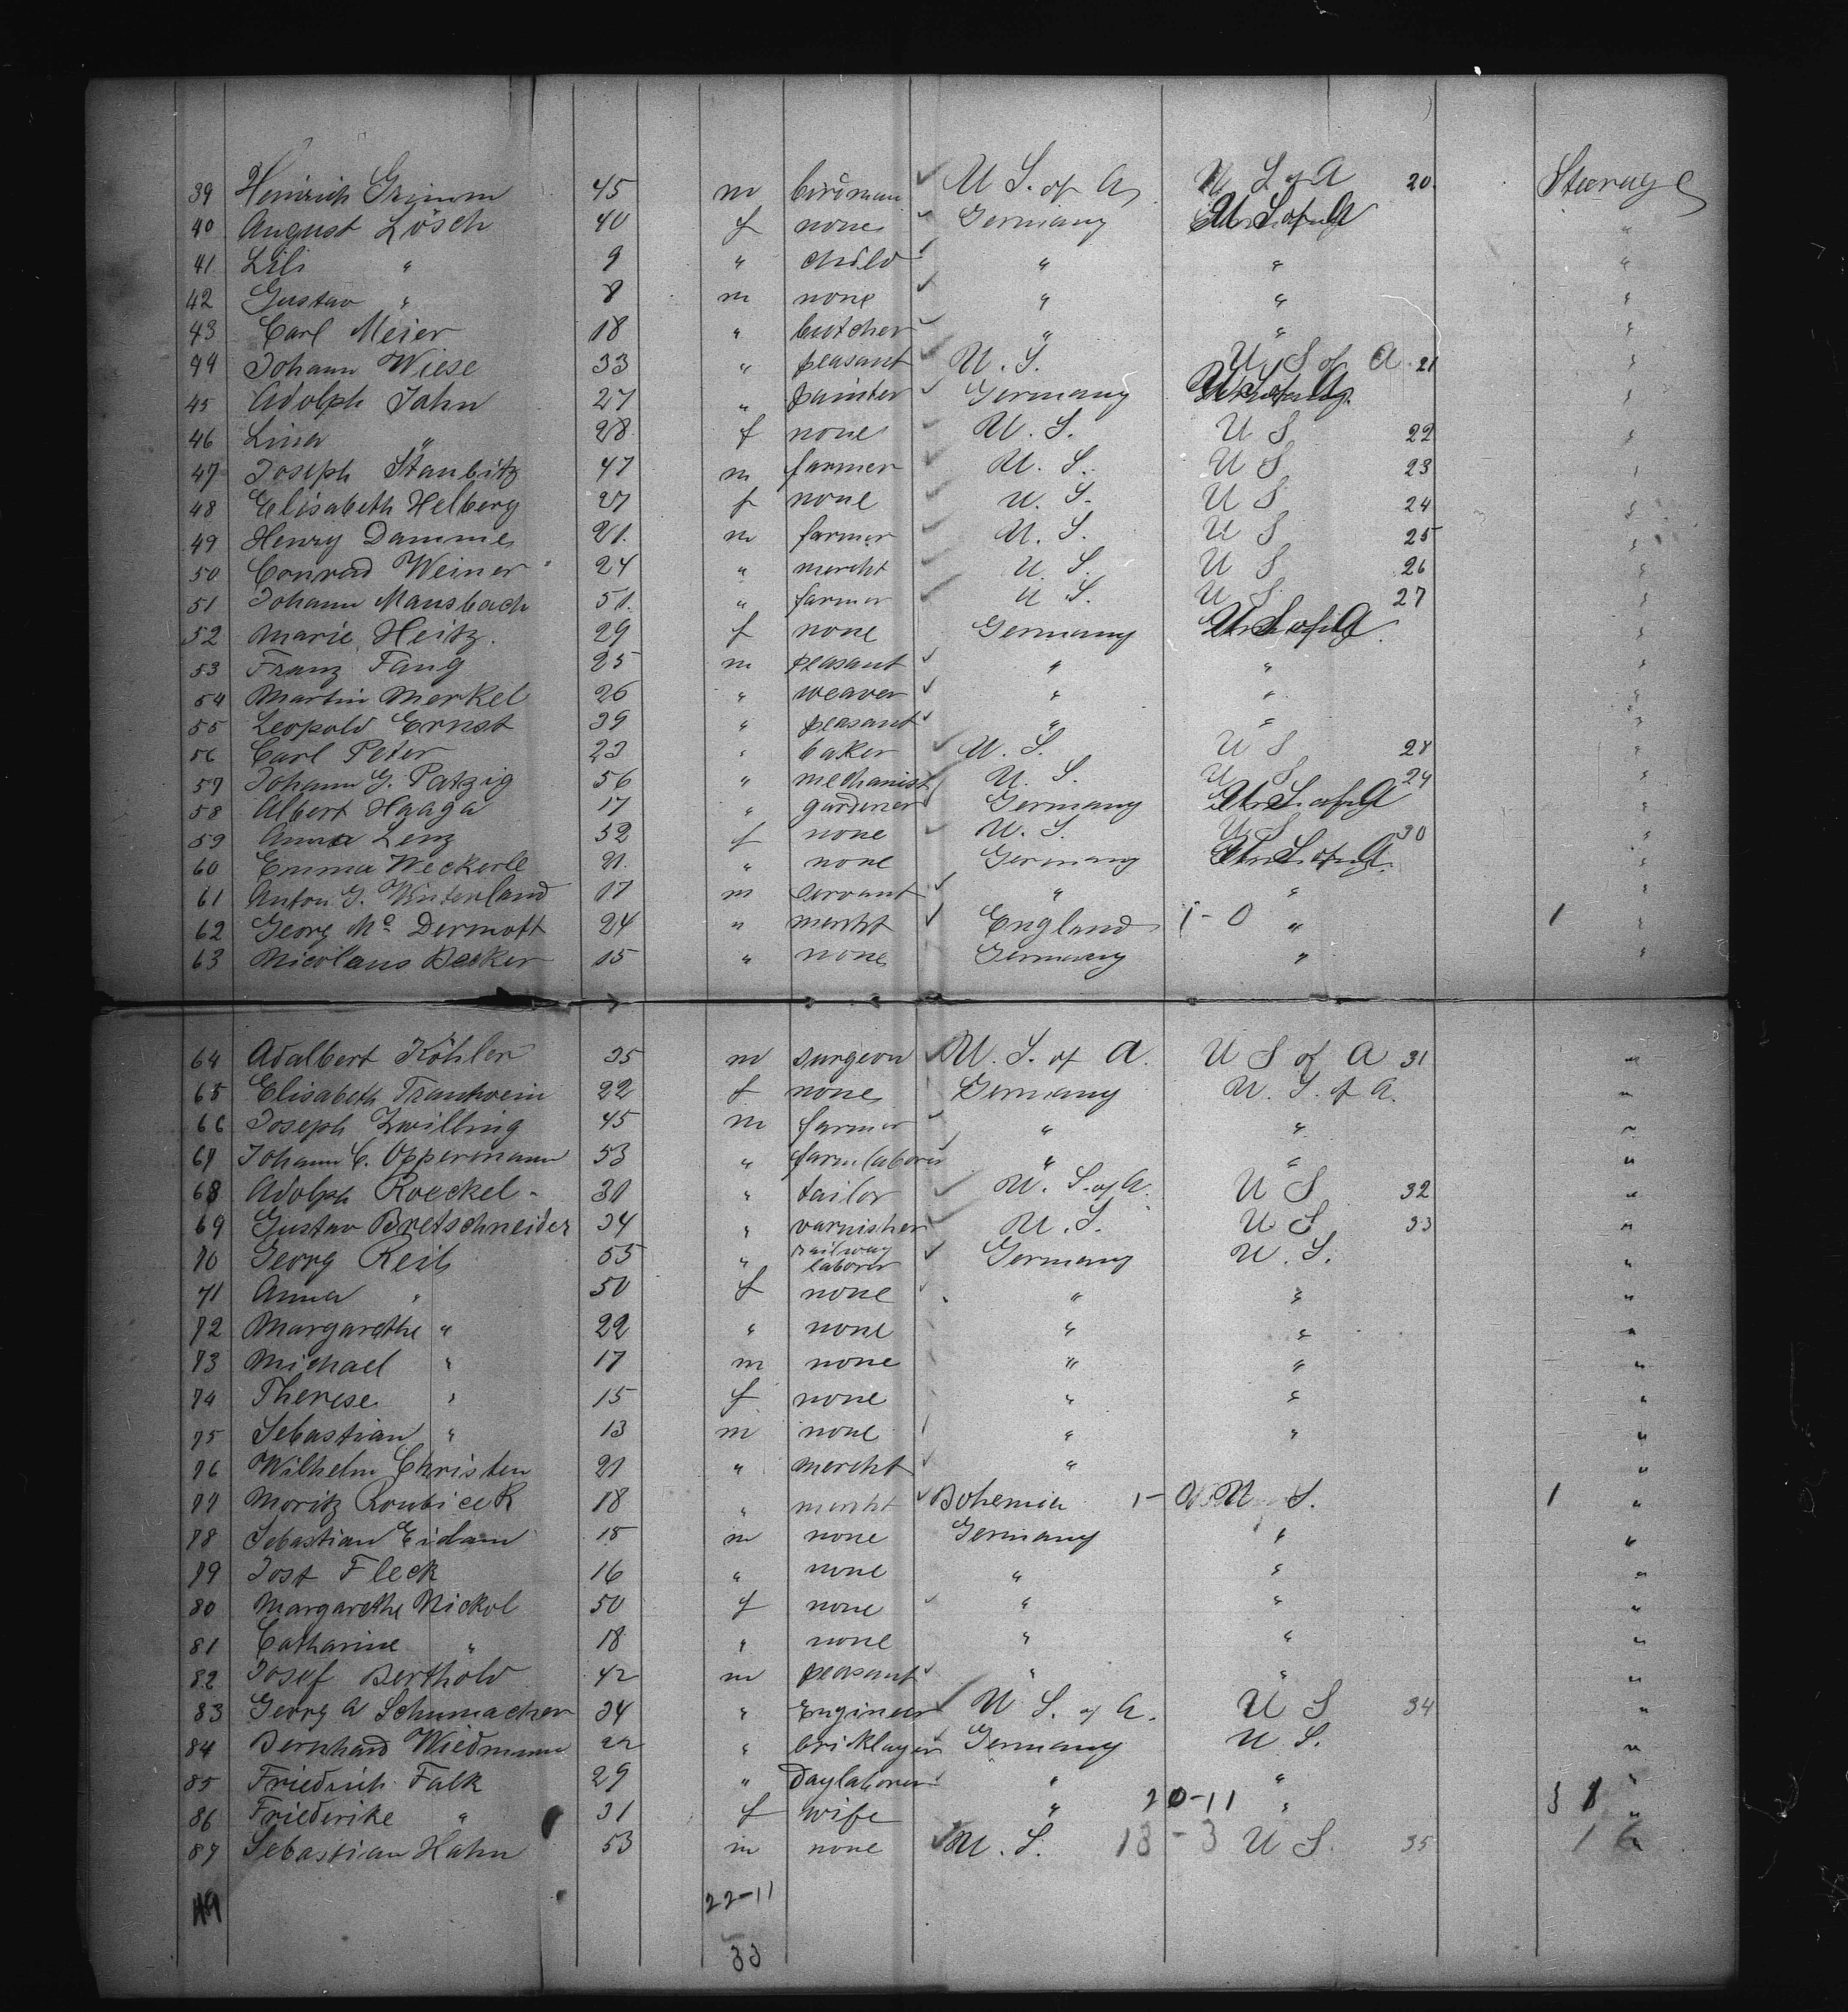 39 Heinrich Grimm 45 m birdman U S. of A U S of A 20. Steerage
40 August Lösch 40 f none Germany U S of A "
41 Lili " 9 " child " " "
42 Gustav " 8 m none " " "
43 Carl Meier 18 " butcher " " "
44 Johann Wiese 33 " peasant U. S. U S of A. 21 "
45 Adolph Jahn 27 " painter Germany U S of A. "
46 Lina " 28 f none U. S. U S 22 "
47 Joseph Staubitz 47 m farmer U. S. U S 23 "
48 Elisabeth Helberg 27 f none U. S. U S 24 "
49 Henry Damme 21. m farmer U. S. U S 25 "
50 Conrad Weiner 24 " mercht U. S. U S 26 "
51 Johann Mansbach 51. " farmer U S. U S 27 "
52 Marie Heitz. 29 f none Germany U S of A. "
53 Franz Fang 25 m peasant " " "
54 Martin Merkel 26 " weaver " " "
55 Leopold Ernst 39 " peasant " " "
56 Carl Peter 23 " baker U. S. U S 28 "
57 Johann G. Patzig 56 " mechanist U. S. U S. 29 "
58 Albert Haaga 17 " gardener Germany U S of A "
59 Anna Lenz 52 f none U. S. U S 30 "
60 Emma Weckerle 21. " none Germany U S of A. "
61 Anton G. Winterland 17 m servant " " "
62 Georg Mc Dermott 24 " mercht England 1-0 " 1 "
63 Nicolaus Becker 15 " none Germany " "
64 Adalbert Köhler 35 m surgeon U. S. of A. U S of A 31 "
65 Elisabeth Trautwein 22 f none Germany U. S. of A. "
66 Joseph Zwilling 45 m farmer " " "
67 Johann C. Oppermann 53 " farm laborer " " "
68 Adolph Roeckel 31 " tailor U. S. of A. U S 32 "
69 Gustav Bretschneider 34 " varnisher U. S. U S 33 "
70 Georg Reil 55 " railway laborer Germany U. S. "
71 Anna " 50 f none " " "
72 Margarethe " 22 " none " " "
73 Michael " 17 m none " " "
74 Therese " 15 f none " " "
75 Sebastian " 13 m none " " "
76 Wilhelm Christen 21 " mercht " "
77 Moritz Roubicek 18 " mercht Bohemia 1-0 U S. 1 "
78 Sebastian Eidam 15 m none Germany " "
79 Jost Fleck 16 " none " " "
80 Margarethe Nickol 50 f none " " "
81 Catharine " 18 " none " " "
82 Josef Berthold 42 m peasant " " "
83 Georg A Schumacher 34 " Engineer U S. of A. U S 34 "
84 Bernhard Wiedmann 22 " bricklayer Germany U S. "
85 Friedrich Falk 29 " daylaborer " " "
86 Friederike " 31 f wife " 20-11 " 3 1 "
87 Sebastian Hahn 53 m none U. S. 13-3 U S. 35 1 6 "
49 22-11
33